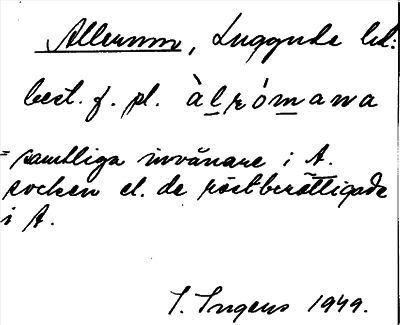 Allerum, Luggude hd:
best. f. pl. àlrómana
= samtliga invånare i A.
socken el. de röstberättigade
i A.
I. Ingers 1949.